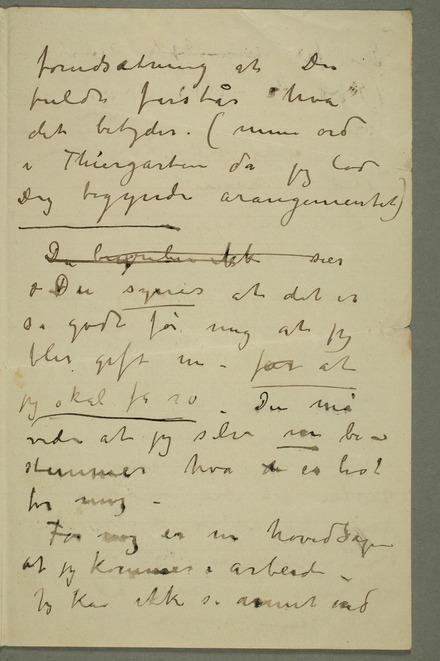 forudsætning at Du
fuldt forstår "hva"
det betyder. (mine ord
i Thiergarten da jeg lod
Dig begynde arangementet)
Du begynder ikk sier
Du synes at det er
så godt før mig at jeg
blir gift nu - for at
jeg skal få ro - Du må
vide at jeg selv nu be-
stemmer hva der er bst
for mig -
For mig er nu hovedsagen
at jeg kommer i arbeide -
Jeg kan ikke se annet end